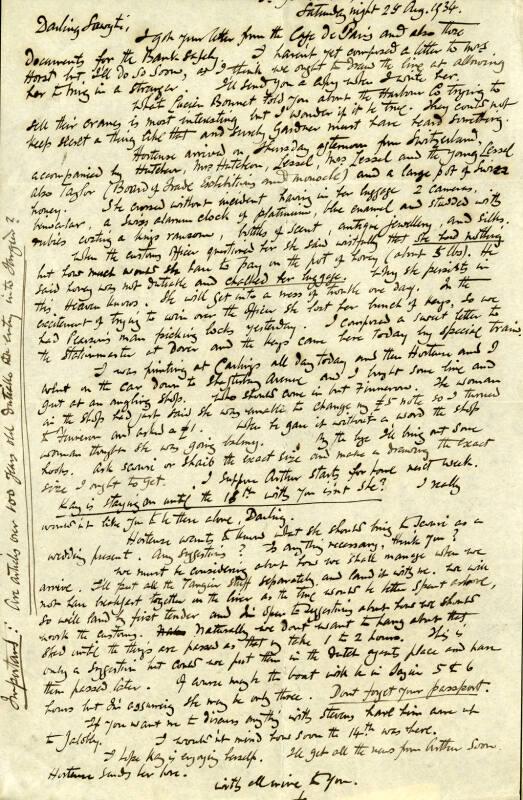 Saturday night 25 Aug. 1934.
Darling
I got your letter from the Cafe de Paris and also those
documents for the Bank safely. I haven't yet composed a letter to Mrs.
Horst but I'll do so soon, as I think we ought to draw the line at allowing
her to bring in a stranger. I'll send you a copy when I write her.
What Lucien Bonnet told you about the Harbour Co trying to
sell their cranes is most interesting but I wonder if it is true. They could not
keep secret a thing like that and surely Gardner must have heard something.
Hortense arrived on Thursday afternoon from Switzerland,
accompanied by Hutcheon, Mrs Hutcheon, Lessel, Mrs Lessel and the young Lessel
also Taylor (Board of Trade Exhibitions and monocle) and a large pot of Swiss
honey. She crossed without incident having in her luggage 2 cameras,
binocular, a Swiss alarum clock of platinum, blue enamel and studded with
rubies costing a kings ransome, bottles of scent, antique jewellery, and silks.
When the customs officer questioned her she said wistfully that she had nothing
but how much would she have to pay on the pot of honey (about 5 lbs). He
said honey was not dutiable and chalked her luggage. Why she persists in
this Heaven knows. She will get into a mess of trouble one day. In the
excitement of trying to win over the officer she lost her bunch of keys, so we
had Pearsons man picking locks yesterday. I composed a sweet letter to
the stationmaster at Dover and the keys came here today by special train.
I was printing at Garlings all day today and then Hortense and I
went in the car down to Shaftesbury Avenue and I bought some line and
gut at an angling shop. Who should come in but Finneron. The woman
in the shop had just said she was unable to change my £5 note so I turned
to Finneron and asked a £1. When he gave it without a word the shop
woman thought she was going balmy. By the bye I'll bring out some
hooks. Ask or the exact size and make a drawing the exact
size I ought to get. I suppose Arthur starts for home next week.
Kay is staying on until the 18th with you isn't she? I really
wouldn't like you to be there alone, Darling.
Hortense wants to know what she should bring to as a
wedding present. Any suggestions? Is anything necessary, think you?
We must be considering about how we shall manage when we
arrive. I'll put all the Tangier stuff separately and land it with me. We will
not have breakfast together in the liner as the time would be better spent ashore,
so we'll land 1st tender and I'm open to suggestions about how we should
work the customs. Naturally we don't want to hang about that
shed until the things are passed as that may take 1 to 2 hours. This is
only a suggestion but could we put them in the Dutch agents place and have
them passed later. Of course maybe the boat will be in 5 to 6
hours but I'm assuring she may be only three. Dont forget your passport.
If you want me to discuss anything with Stevens have him come up
to I wouldn't mind how soon the 14th was here.
I hope Kay is enjoying herself. I'll get all the news from Arthur soon.
Hortense sends her love.
With all mine to you.
Important: Are articles over 100 years old dutiable on entry into Tangier?